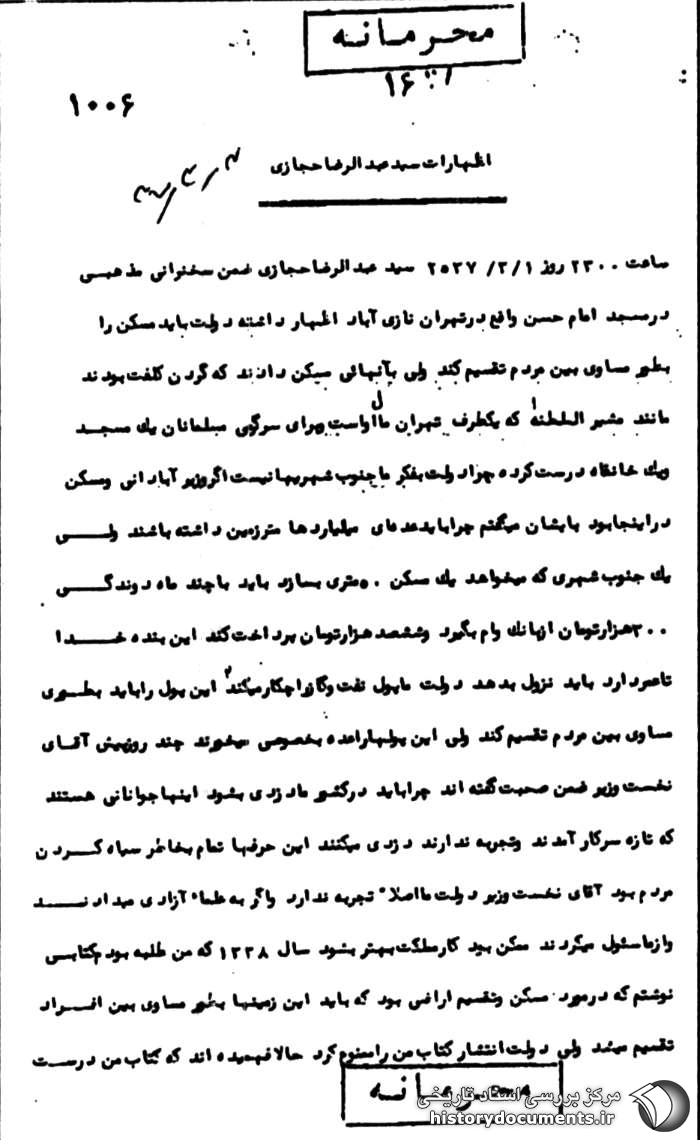 محرمانه
۱۶
۱۰۰۶
اظهارات سید عبدالرضا حجازی
ساعت ۲۳۰۰ روز ۲/۱/ ۲۵۳۷ سید عبدالرضا حجازی ضمن سخنرانی مذهبی
در مسجد امام حسن واقع در تهران نازی آباد اظهار داشته دولت باید مسکن را
بطور مساوی بین مردم تقسیم کند ولی بآنهائی مسکن دادند که گردن کلفت بودند
مانند مشیر السلطنه که یکطرف تهران مال اواست وبرای سرگوبی مسلمانان یک مسجد
ویک خانقاه درست کرده چرا دولت بفکر ما جنوب شهریها نیست اگر وزیر آبادانی ومسکن
در اینجا بود بایشان میگفتم چرا باید عده ای میلیاردها متر زمین داشته باشند ولی
یک جنوب شهری که میخواهد یک مسکن ۵۰ متری بسازد باید با چند ماه دوندگی
۳۰۰ هزار تومان از بانک وام بگیرد وششصد هزار تومان پرداخت کند این بنده خدا
تا عمر دارد باید نزول بدهد دولت ما پول نفت وگاز را چکار میکند؟ این پول را باید بطوری
مساوی بین مردم تقسیم کند ولی این پولها را عده بخصوصی میخورند چند روز پیش آقای
نخست وزیر ضمن صحبت گفته اند چرا باید در کشور ما دزدی بشود اینها جوانانی هستند
که تازه سرکار آمدند وتجربه ندارند دزدی میکنند این حرفها تمام بخاطر سیاه کردن
مردم بود آقای نخست وزیر دولت ما اصلاً تجربه ندارد واگر به علماء آزادی میدادند
واز ما سئول میکردند ممکن بود کار مملکت بهتر بشود سال ۱۳۳۸ که من طلبه بودم کتابی
نوشتم که در مورد مسکن وتقسیم اراضی بود که باید این زمینها بطور مساوی بین افراد
تقسیم میشد ولی دولت انتشار کتاب من را ممنوع کرد حالا فهمیده اند که کتاب من درست
محرمانه
مرکز بررسی اسناد تاریخی
historydocuments.ir